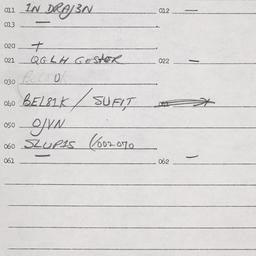 011 IN DRAJ3N 012 —
013 —
020 +
021 QGLH GESTOR 022 —
030 0
040 BEL81K / SUFIT
050 OJVN
060 SLUP15 
061 — 062 —